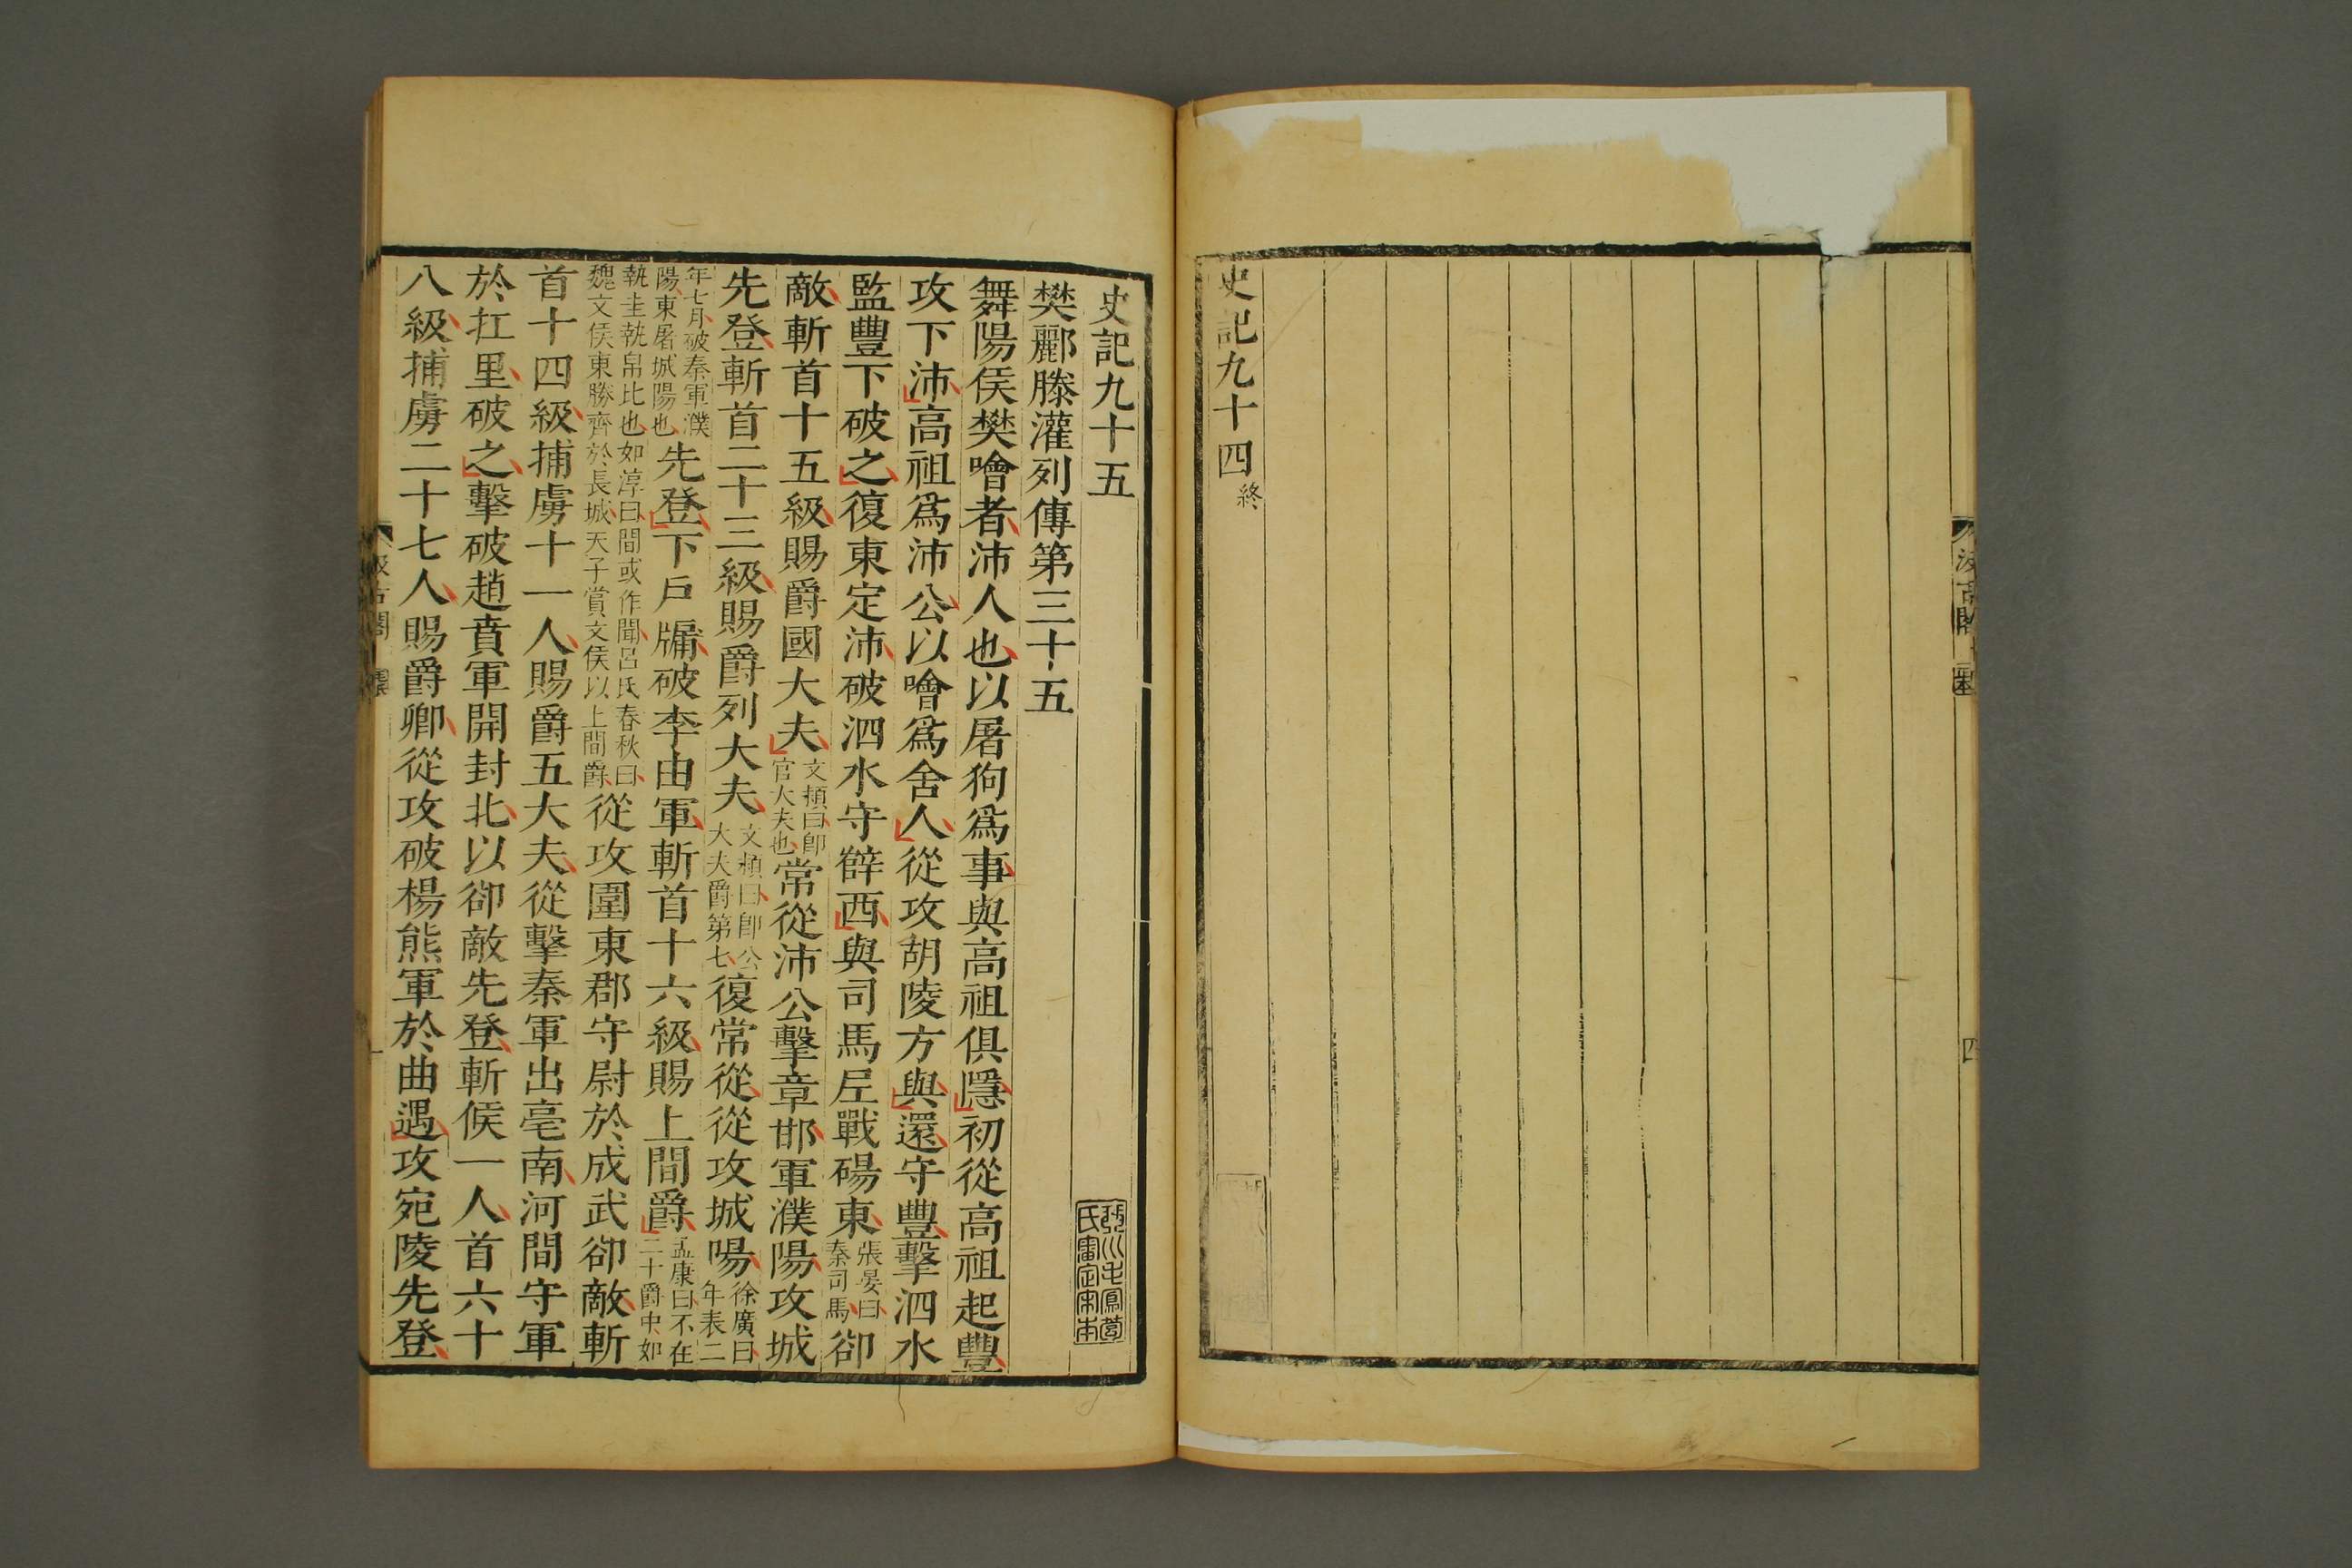 史記九十四終
四
史記九十五
樊酈滕灌列傳第三十五
舞陽侯樊噲者沛人也以屠狗爲事與高祖俱隱初從高祖起豐
攻下沛高祖爲沛公以噲爲舍人從攻胡陵方與還守豐擊泗水
監豐下破之復東定沛破泗水守薛西與司馬𡰥戰碭東張晏曰秦司馬卻
敵斬首十五級賜爵國大夫文穎曰卽官大夫也常從沛公擊章邯軍濮陽攻城
先登斬首二十三級賜爵列大夫文穎曰卽公大夫爵第七復常從從攻城陽徐廣曰年表二
年七月破秦軍濮陽東屠城陽也先登下戶牖破李由軍斬首十六級賜上間爵孟康曰不在二十爵中如
執圭執帛比也如淳曰間或作聞呂氏春秋曰魏文侯東勝齊於長城天子賞文侯以上間爵從攻圍東郡守尉於成武卻敵斬
首十四級捕虜十一人賜爵五大夫從擊秦軍出亳南河間守軍
於扛里破之擊破趙賁軍開封北以卻敵先登斬候一人首六十
八級捕虜二十七人賜爵卿從攻破楊熊軍於曲遇攻宛陵先登